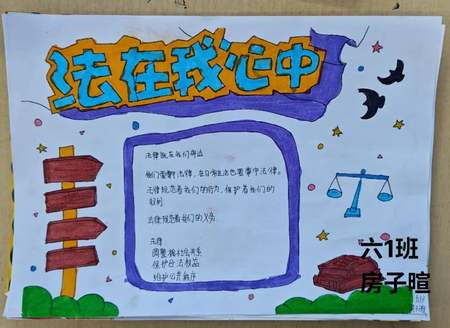 法在我心中
法律就在我们身边
我们要遵守法律,在日常生活也要遵守法律。
法律规范着我们的行为,保护着我们的
权利
法律规范着我们的义务
法律
调整社会关系
保护合法
维护公共秩序
六1班
房子暄